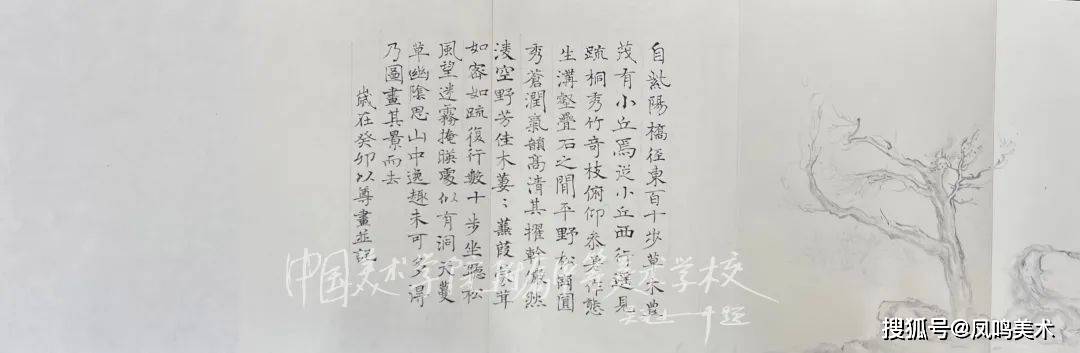 自紫陽橋徑東百十步草木豊
茂有小丘焉送小丘西行遥見
疏桐秀竹奇枝俯仰參差作態
生溝壑疊石之間平野松爾圓
秀蒼潤氣韻高清其擢幹嚴然
淩空野芳佳木萋〻蒹葭
如密如疏復行數十步坐聽松
風望迷霧掩暎處似有洞天蔓
草幽陰思山中逸趣未可多得
乃圖畫其景而去
歲在癸卯以尊畫並記
中国美术学院 美术学校
搜狐号@凤鸣美术